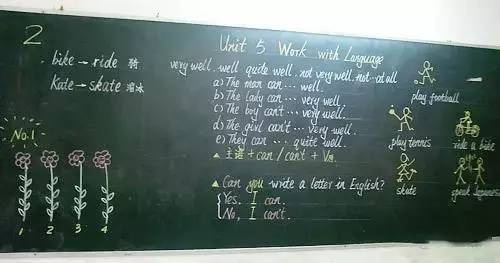 2
bike → ride 骑
Kate → skate 溜冰
No.1
1 2 3 4
Unit 5 Work with Language
very well. well quite well. not very well. not…at all
a) The man can … well.
b) The lady can … very well.
c) The boy can't … very well.
d) The girl can't … very well.
e) They can … quite well.
▲ 主语 + can / can't + V原.
▲ Can you write a letter in English?
Yes, I can.
No, I can't.
play football
play tennis
ride a bike
skate
speak Japanese